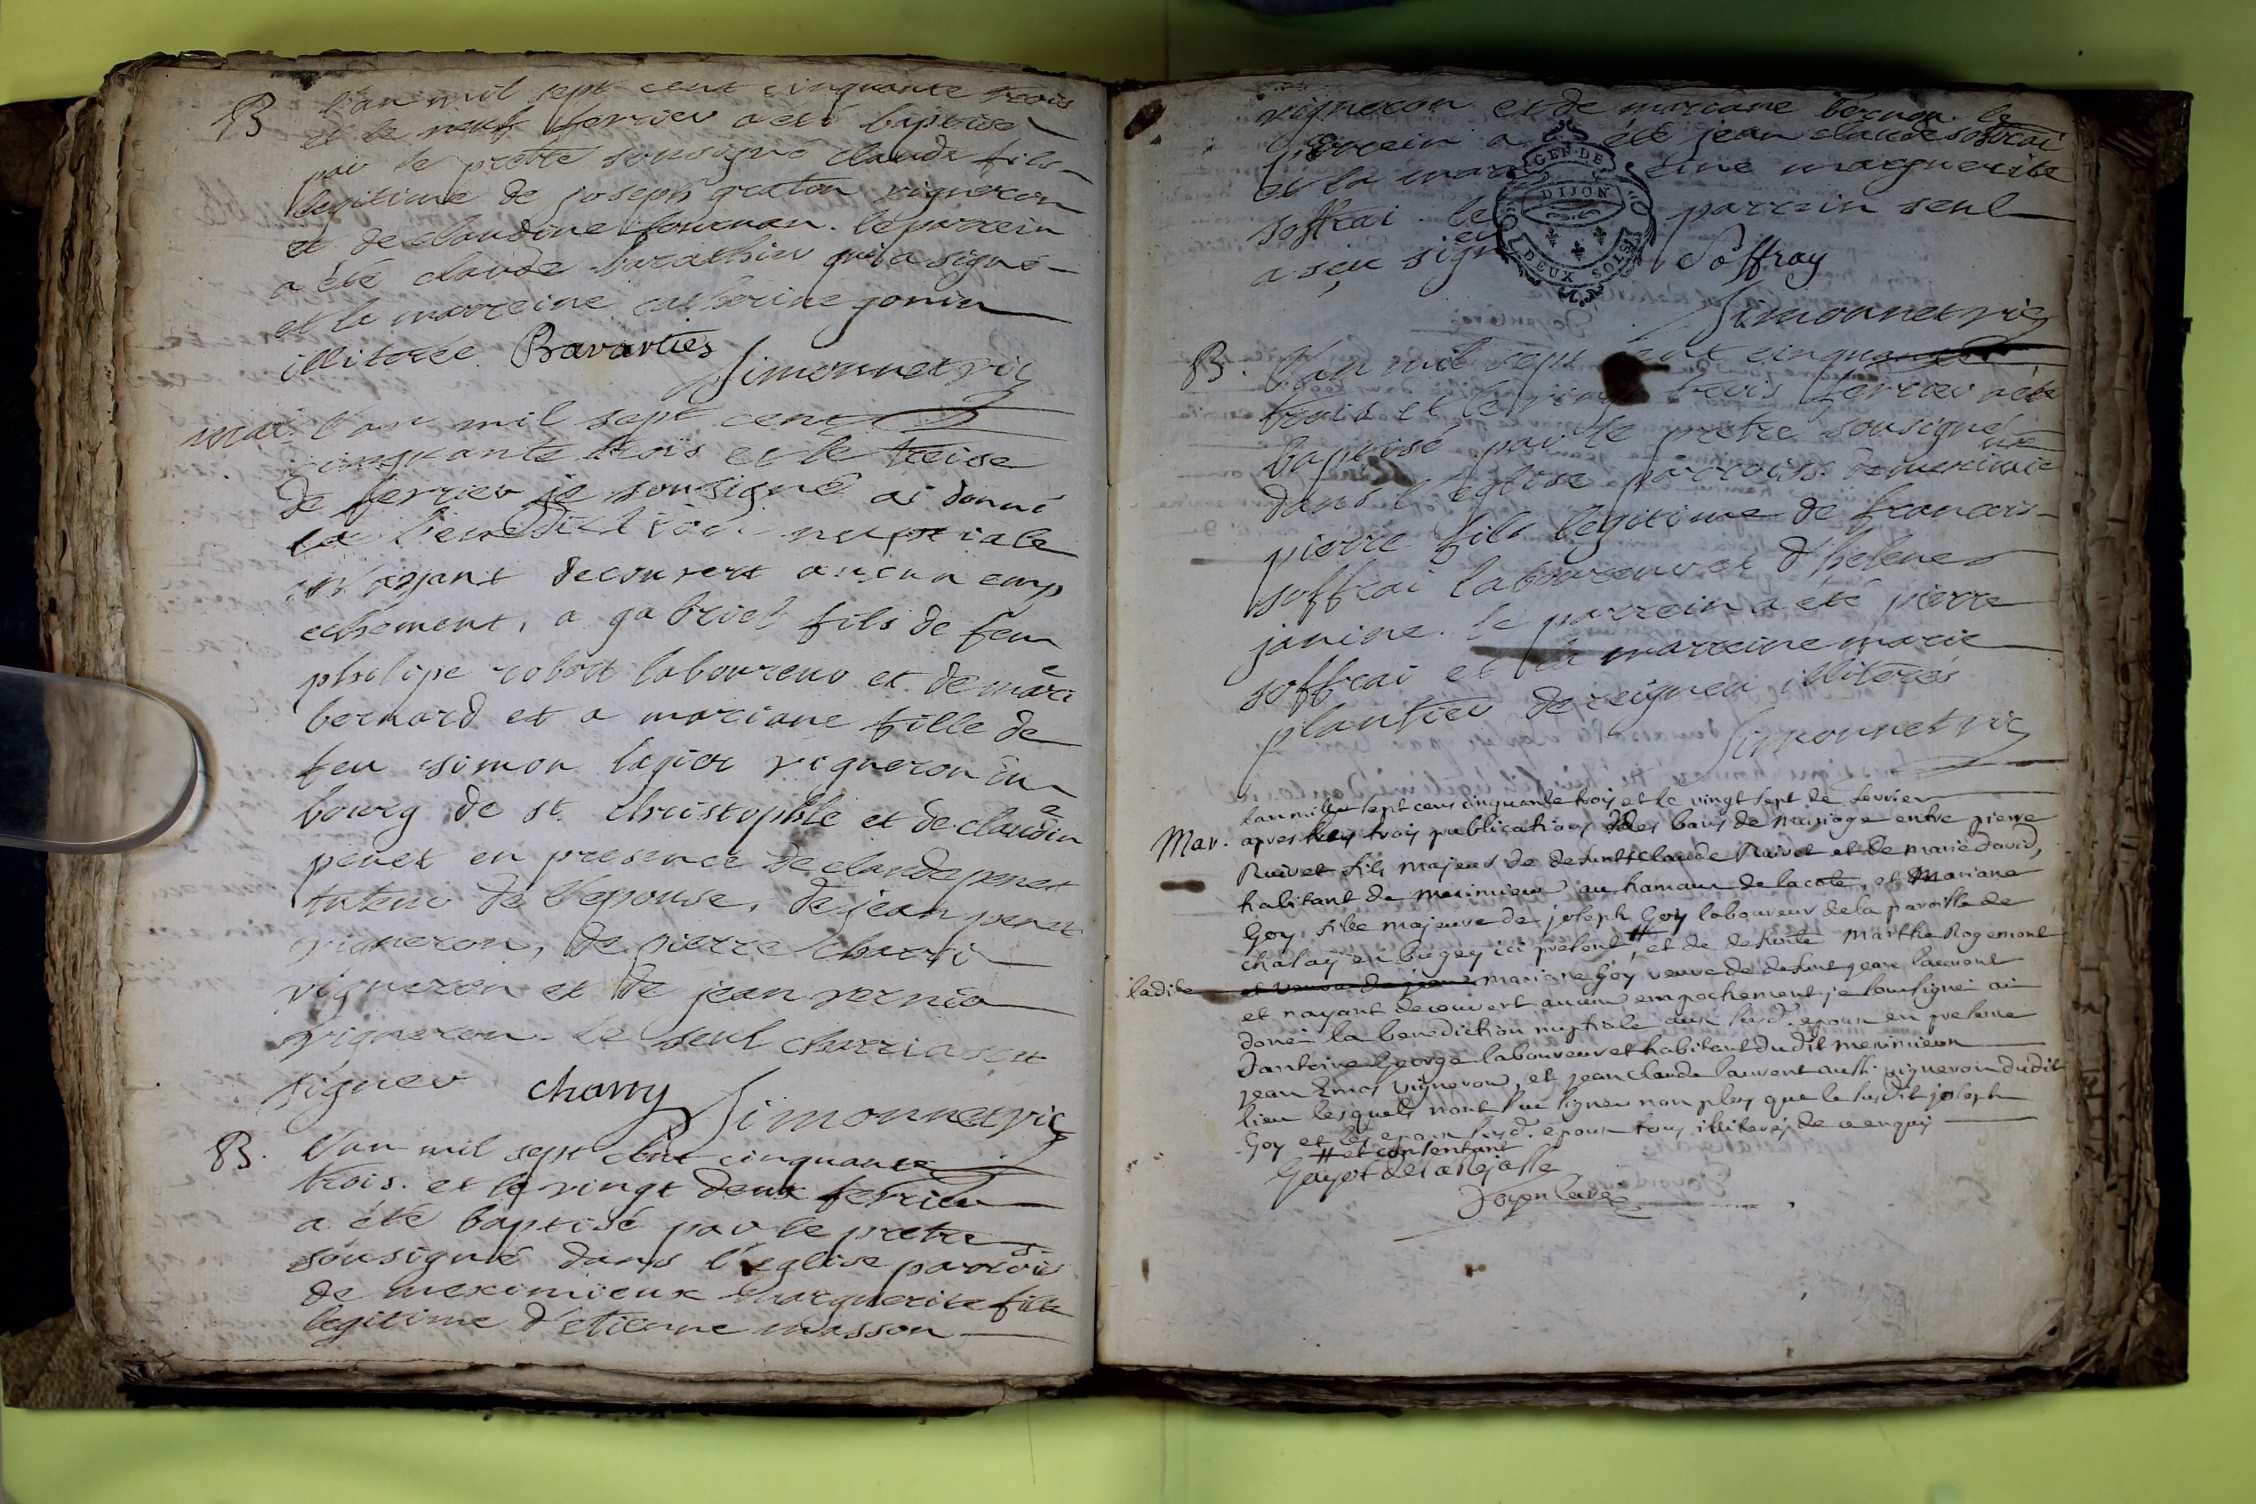 B L'an mil sept cent cinquante trois
et le neuf ferrier a été baptisé
par le pretre sousigné claude fils
legitime de joseph graton vigneron
et de claudine fournan. le parrein
a été claude barathier qui a signé
et la marreine catherine gonin
illiterée. Bavarties
Simonnet vic
mar. l'an mil sept cent
cinquante trois et le treise
de ferrier je sousigné ai donné
la benediction nuptiale
n'ayant decouvert aucun emp
echement, a gabriel fils de feu
philipe robat laboureur et de marie
bernard et a mariane fille de
feu simon lagier vigneron du
bourg de st christophle et de claudine
penet en presence de claude penet
tuteur de l'epouse, de jean penet
vigneron, de pierre charri
vigneron et de jean vernio
vigneron. le seul charri a seu
signer charry Simonnet vic
B. L'an mil sept cent cinquante
trois. et le vingt deux ferrier
a été baptisé par le pretre
sousigné dans l'eglise parrois.
de meximieux marguerite fille
legitime d'etienne masson
vigneron et de mariane bernon. le
parrein a été jean claude soffrai
et la marreine marguerite
soffrai. le parrein seul
a sçeu signer Soffray
GEN DE DIJON
DEUX SOLS
Simonnet vic
B. L'an mil sept cent cinquante
trois et le vingt trois ferrier a été
baptisé par le pretre sousigné
dans l'eglise parrois. de meximieux
pierre fils legitime de francois
soffrai laboureur et d'helene
janine. le parrein a été pierre
soffrai et la marreine marie
plantier de reignea illiterés
Simonnet vic
L'an mille sept cens cinquante trois et le vingt sept de fevrier
Mar. apres les trois publications des bans de mariage entre pierre
Ruivet fils majeur de defunt Claude Ruivet et de marie david,
habitant de Meximieux au hamau de la cote, et Mariane
Goy, fille majeure de joseph Goy laboureur de la paroisse de
chalay en bugey ici present # et de defunte Marthe Rogemont
ladite et veuve de jean mariane Goy veuve de defunt jean laurent
et n'ayant decouvert aucun empechement je sousigné ai
doné la benediction nuptiale aux susd. epoux en presence
d'antoine George laboureur et habitant dudit meximieux
jean Emos vigneron, et jean claude laurent aussi vigneron dudit
lieu lesquels n'ont sçu signer non plus que le susdit joseph
Goy et les epoux susd. epoux tous illiterés de ce enquis
# et consentant
Guyot de la Rejasse
Doyen Curé